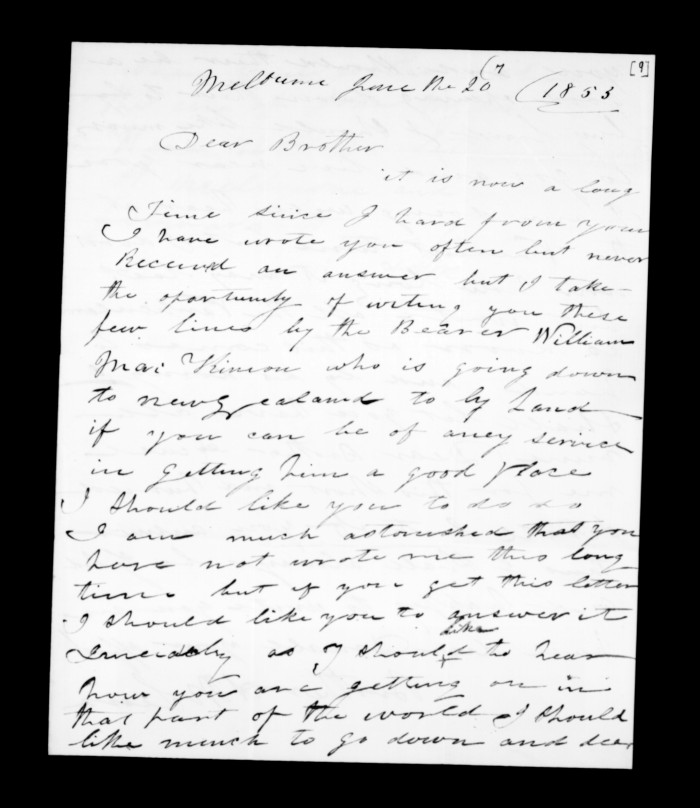 [9]
Melburne June the 20 1853
Dear Brother
it is now a long
Time since I hard from you
I have wrote you often but never
Receved an answer but I take
the oportunity of writing you these
few lines by the Bearer William
Mac Kinion who is going down
to newzealand to by Land
if you can be of aney service
in getting him a good place
I should like you to do so
I am much astonished that you
have not wrote me this long
time but if you get this letter
I should like you to answer it
as I should like to hear
how you are getting on in
that part of the world I should
like much to go down and dear